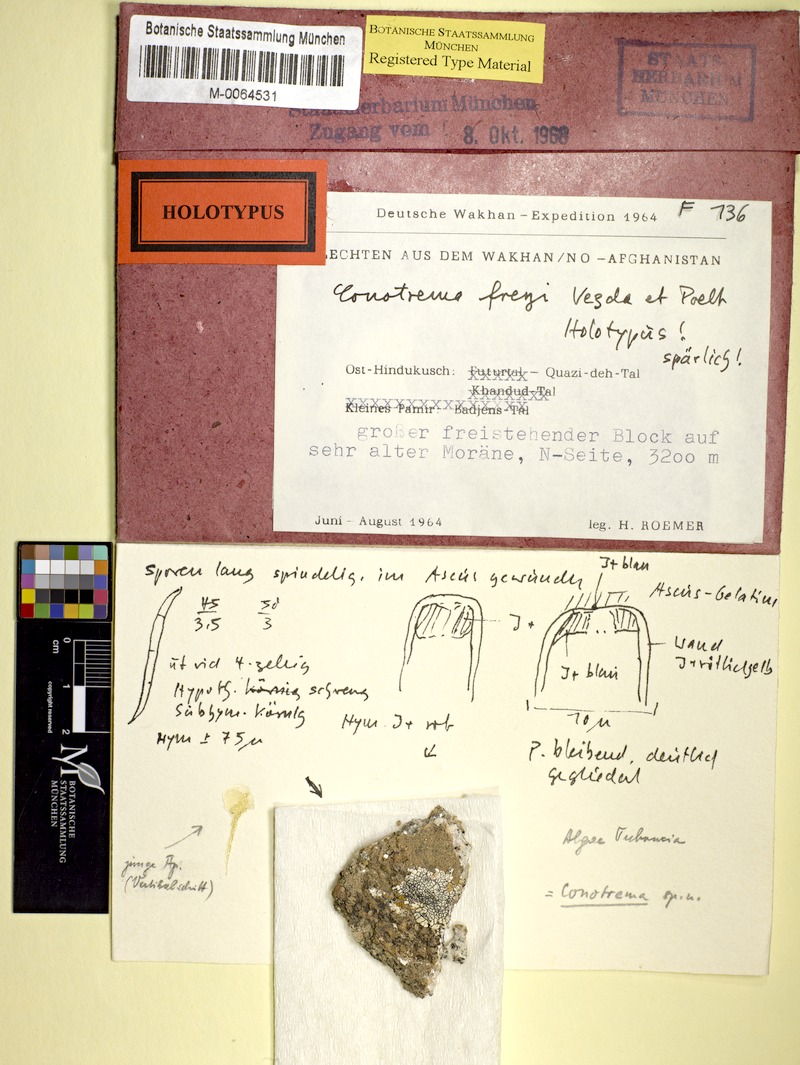 Botanische Staatssammlung München
M-0064531
BOTANISCHE STAATSSAMMLUNG
MÜNCHEN
Registered Type Material
STAATS
HERBARIUM
MÜNCHEN
Staatsherbarium München
Zugang vom 8. Okt. 1968
HOLOTYPUS
Deutsche Wakhan – Expedition 1964 F 136
ECHTEN AUS DEM WAKHAN/NO – AFGHANISTAN
Conotrema freyi Vezda et Poelt
Holotypus!
spärlich!
Ost-Hindukusch: – Quazi-deh-Tal
Khandud-Tal
Kleines Pamir: Badjens-Tal
großer freistehender Block auf
sehr alter Moräne, N-Seite, 3200 m
Juni – August 1964 leg. H. ROEMER
Sporen lang spindelig, im Ascus gewunden
45 50
3,5 3
4-zellig
Hypoth.
Subhym. körnig
Hym ± 75 µ
J+
Hym. J+ rot
J+ blau
Ascus-Gelatine
Wand
J+ rötlichgelb
J+ blau
10 µ
P. bleibend, deutlich
gegliedert
junge Ap.
(Vertikalschnitt)
Algae
= Conotrema sp. n.
0 1 2
cm
copyright reserved
M
BOTANISCHE
STAATSSAMMLUNG
MÜNCHEN